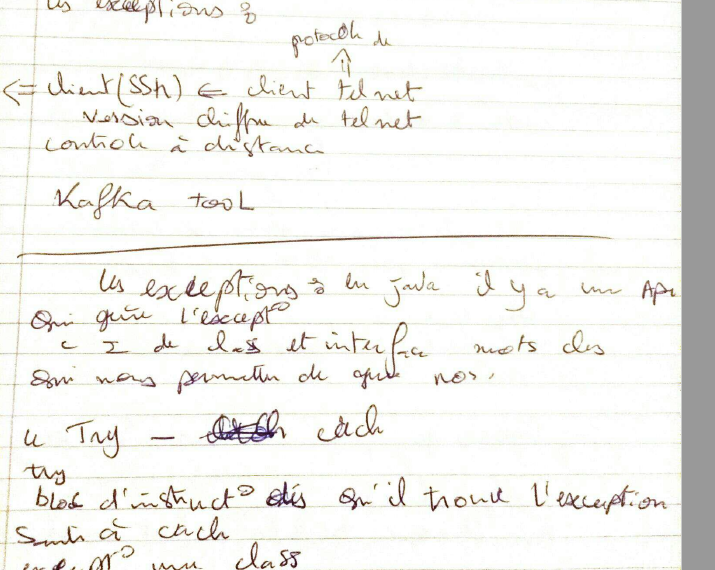 les exceptions :
protocole de
<= client (SSh) <= client telnet
version chiffre de telnet
controle à distance
Kafka tool
les exceptions : en java il y a un API
Qui gère l'except°
c Σ de class et interface mots cles
Qui nous permettre de gérer nos.
le Try - cach
try
bloc d'instruct° dès qu'il trouve l'exception
Saute à cach
except° une class